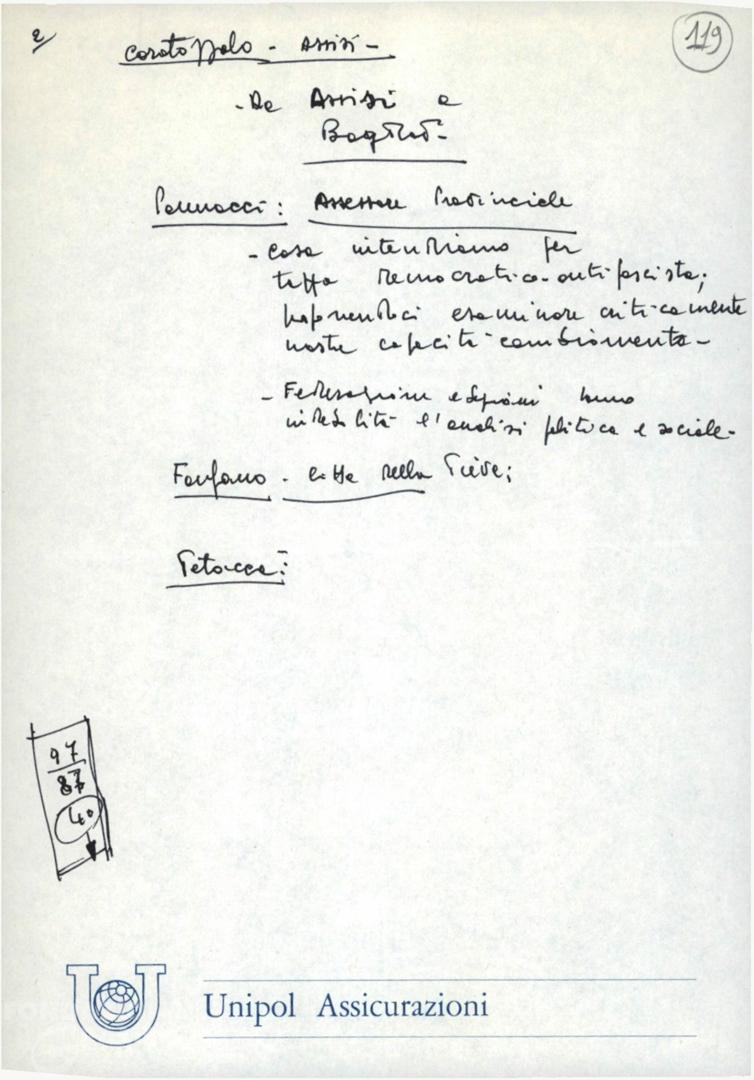 2/
119
- Assisi -
- Da Assisi a
Bagdad -
Pannacci: Assessore Provinciale
- Cosa intendiamo per
tappa democratica-antifascista;
proponendoci esaminare criticamente
nostre capacità cambiamento -
- Federazione e sezioni hanno
l'analisi politica e sociale -
Fanfano - Città della Pieve;
Petacca:
97
87
40
Unipol Assicurazioni